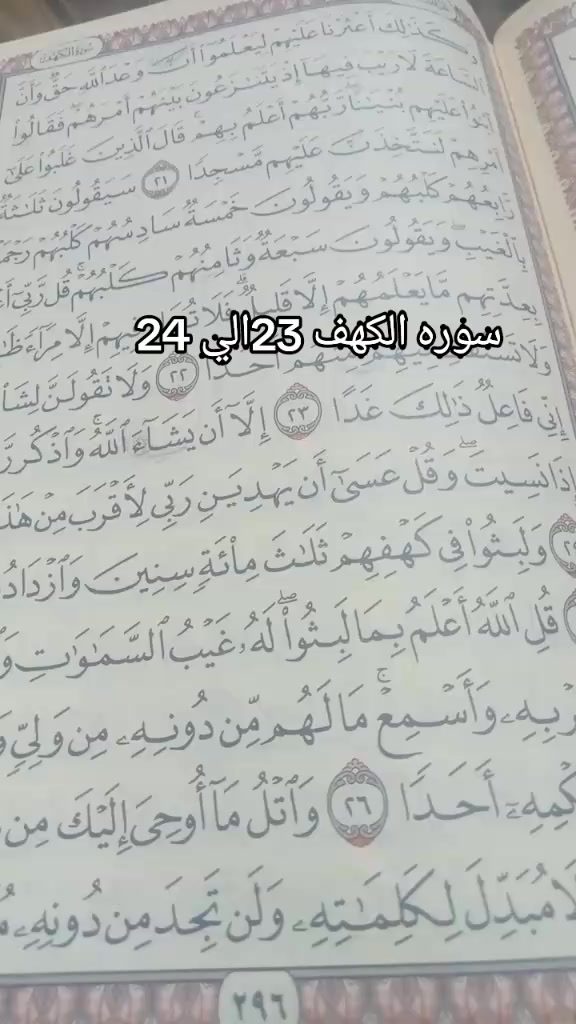 سورة الكهف
وَكَذَٰلِكَ أَعْثَرْنَا عَلَيْهِمْ لِيَعْلَمُوٓا۟ أَنَّ وَعْدَ ٱللَّهِ حَقٌّ وَأَنَّ
ٱلسَّاعَةَ لَا رَيْبَ فِيهَآ إِذْ يَتَنَٰزَعُونَ بَيْنَهُمْ أَمْرَهُمْ فَقَالُوا۟
ٱبْنُوا۟ عَلَيْهِم بُنْيَٰنًا رَّبُّهُمْ أَعْلَمُ بِهِمْ قَالَ ٱلَّذِينَ غَلَبُوا۟ عَلَىٰٓ
أَمْرِهِمْ لَنَتَّخِذَنَّ عَلَيْهِم مَّسْجِدًا ٢١ سَيَقُولُونَ ثَلَٰثَةٌ
رَّابِعُهُمْ كَلْبُهُمْ وَيَقُولُونَ خَمْسَةٌ سَادِسُهُمْ كَلْبُهُمْ رَجْمًا
بِٱلْغَيْبِ وَيَقُولُونَ سَبْعَةٌ وَثَامِنُهُمْ كَلْبُهُمْ قُل رَّبِّىٓ
بِعِدَّتِهِم مَّا يَعْلَمُهُمْ إِلَّا قَلِيلٌ فَلَا إِلَّا مِرَآءً
سوره الكهف 23الي 24
أَحَدًا ٢٢ وَلَا تَقُولَنَّ
إِنِّى فَاعِلٌ ذَٰلِكَ غَدًا ٢٣ إِلَّآ أَن يَشَآءَ ٱللَّهُ وَٱذْكُر
إِذَا نَسِيتَ وَقُلْ عَسَىٰٓ أَن يَهْدِيَنِ رَبِّى لِأَقْرَبَ مِنْ هَٰذَا
وَلَبِثُوا۟ فِى كَهْفِهِمْ ثَلَٰثَ مِا۟ئَةٍ سِنِينَ
قُلِ ٱللَّهُ أَعْلَمُ بِمَا لَبِثُوا۟ لَهُۥ غَيْبُ ٱلسَّمَٰوَٰتِ
وَأَسْمِعْ مَا لَهُم مِّن دُونِهِۦ مِن وَلِىٍّ
أَحَدًا ٢٦ وَٱتْلُ مَآ أُوحِىَ إِلَيْكَ مِن
لَا مُبَدِّلَ لِكَلِمَٰتِهِۦ وَلَن تَجِدَ مِن دُونِهِۦ
٢٩٦